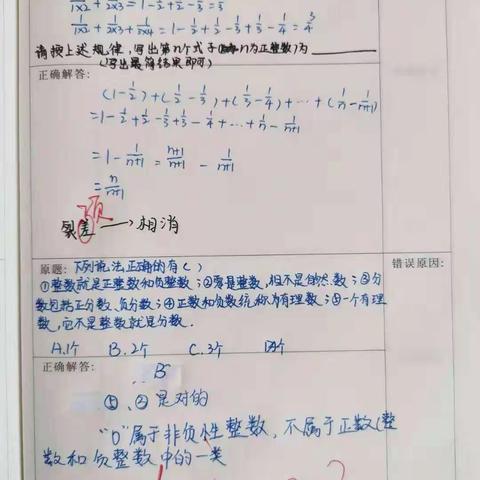 1/1×2 + 1/2×3 = 1 - 1/2 + 1/2 - 1/3 = 2/3
1/1×2 + 1/2×3 + 1/3×4 = 1 - 1/2 + 1/2 - 1/3 + 1/3 - 1/4 = 3/4
请按上述规律,写出第n个式子(n为正整数)为
(写出最简结果即可)
正确解答:
(1-1/2)+(1/2-1/3)+(1/3-1/4)+…+(1/n-1/n+1)
=1-1/2+1/2-1/3+1/3-1/4+…+1/n-1/n+1
=1-1/n+1=n+1/n+1-1/n+1
=n/n+1
项
裂差→相消
原题:下列说法正确的有( )
错误原因:
①整数就是正整数和负整数;②零是整数,但不是自然数;③分
数包括正分数、负分数;④正数和负数统称为有理数;⑤一个有理
数,它不是整数就是分数.
A.1个 B.2个 C.3个 D.4个
正确解答:
B
⑤、③是对的
“0”属于非负性整数,不属于正数(整
数和负整数中的一类